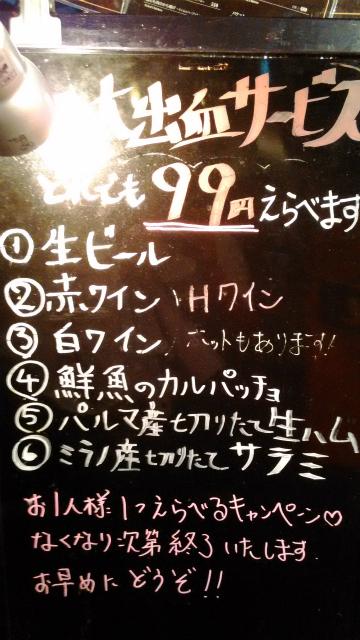 大出血サービス
どれでも99円えらべます
①生ビール
②赤ワイン Hワイン
③白ワイン ホットもあります!
④鮮魚のカルパッチョ
⑤パルマ産切りたて生ハム
⑥ミラノ産切りたてサラミ
お1人様1つえらべるキャンペーン♡
なくなり次第終了いたします
お早めにどうぞ!!